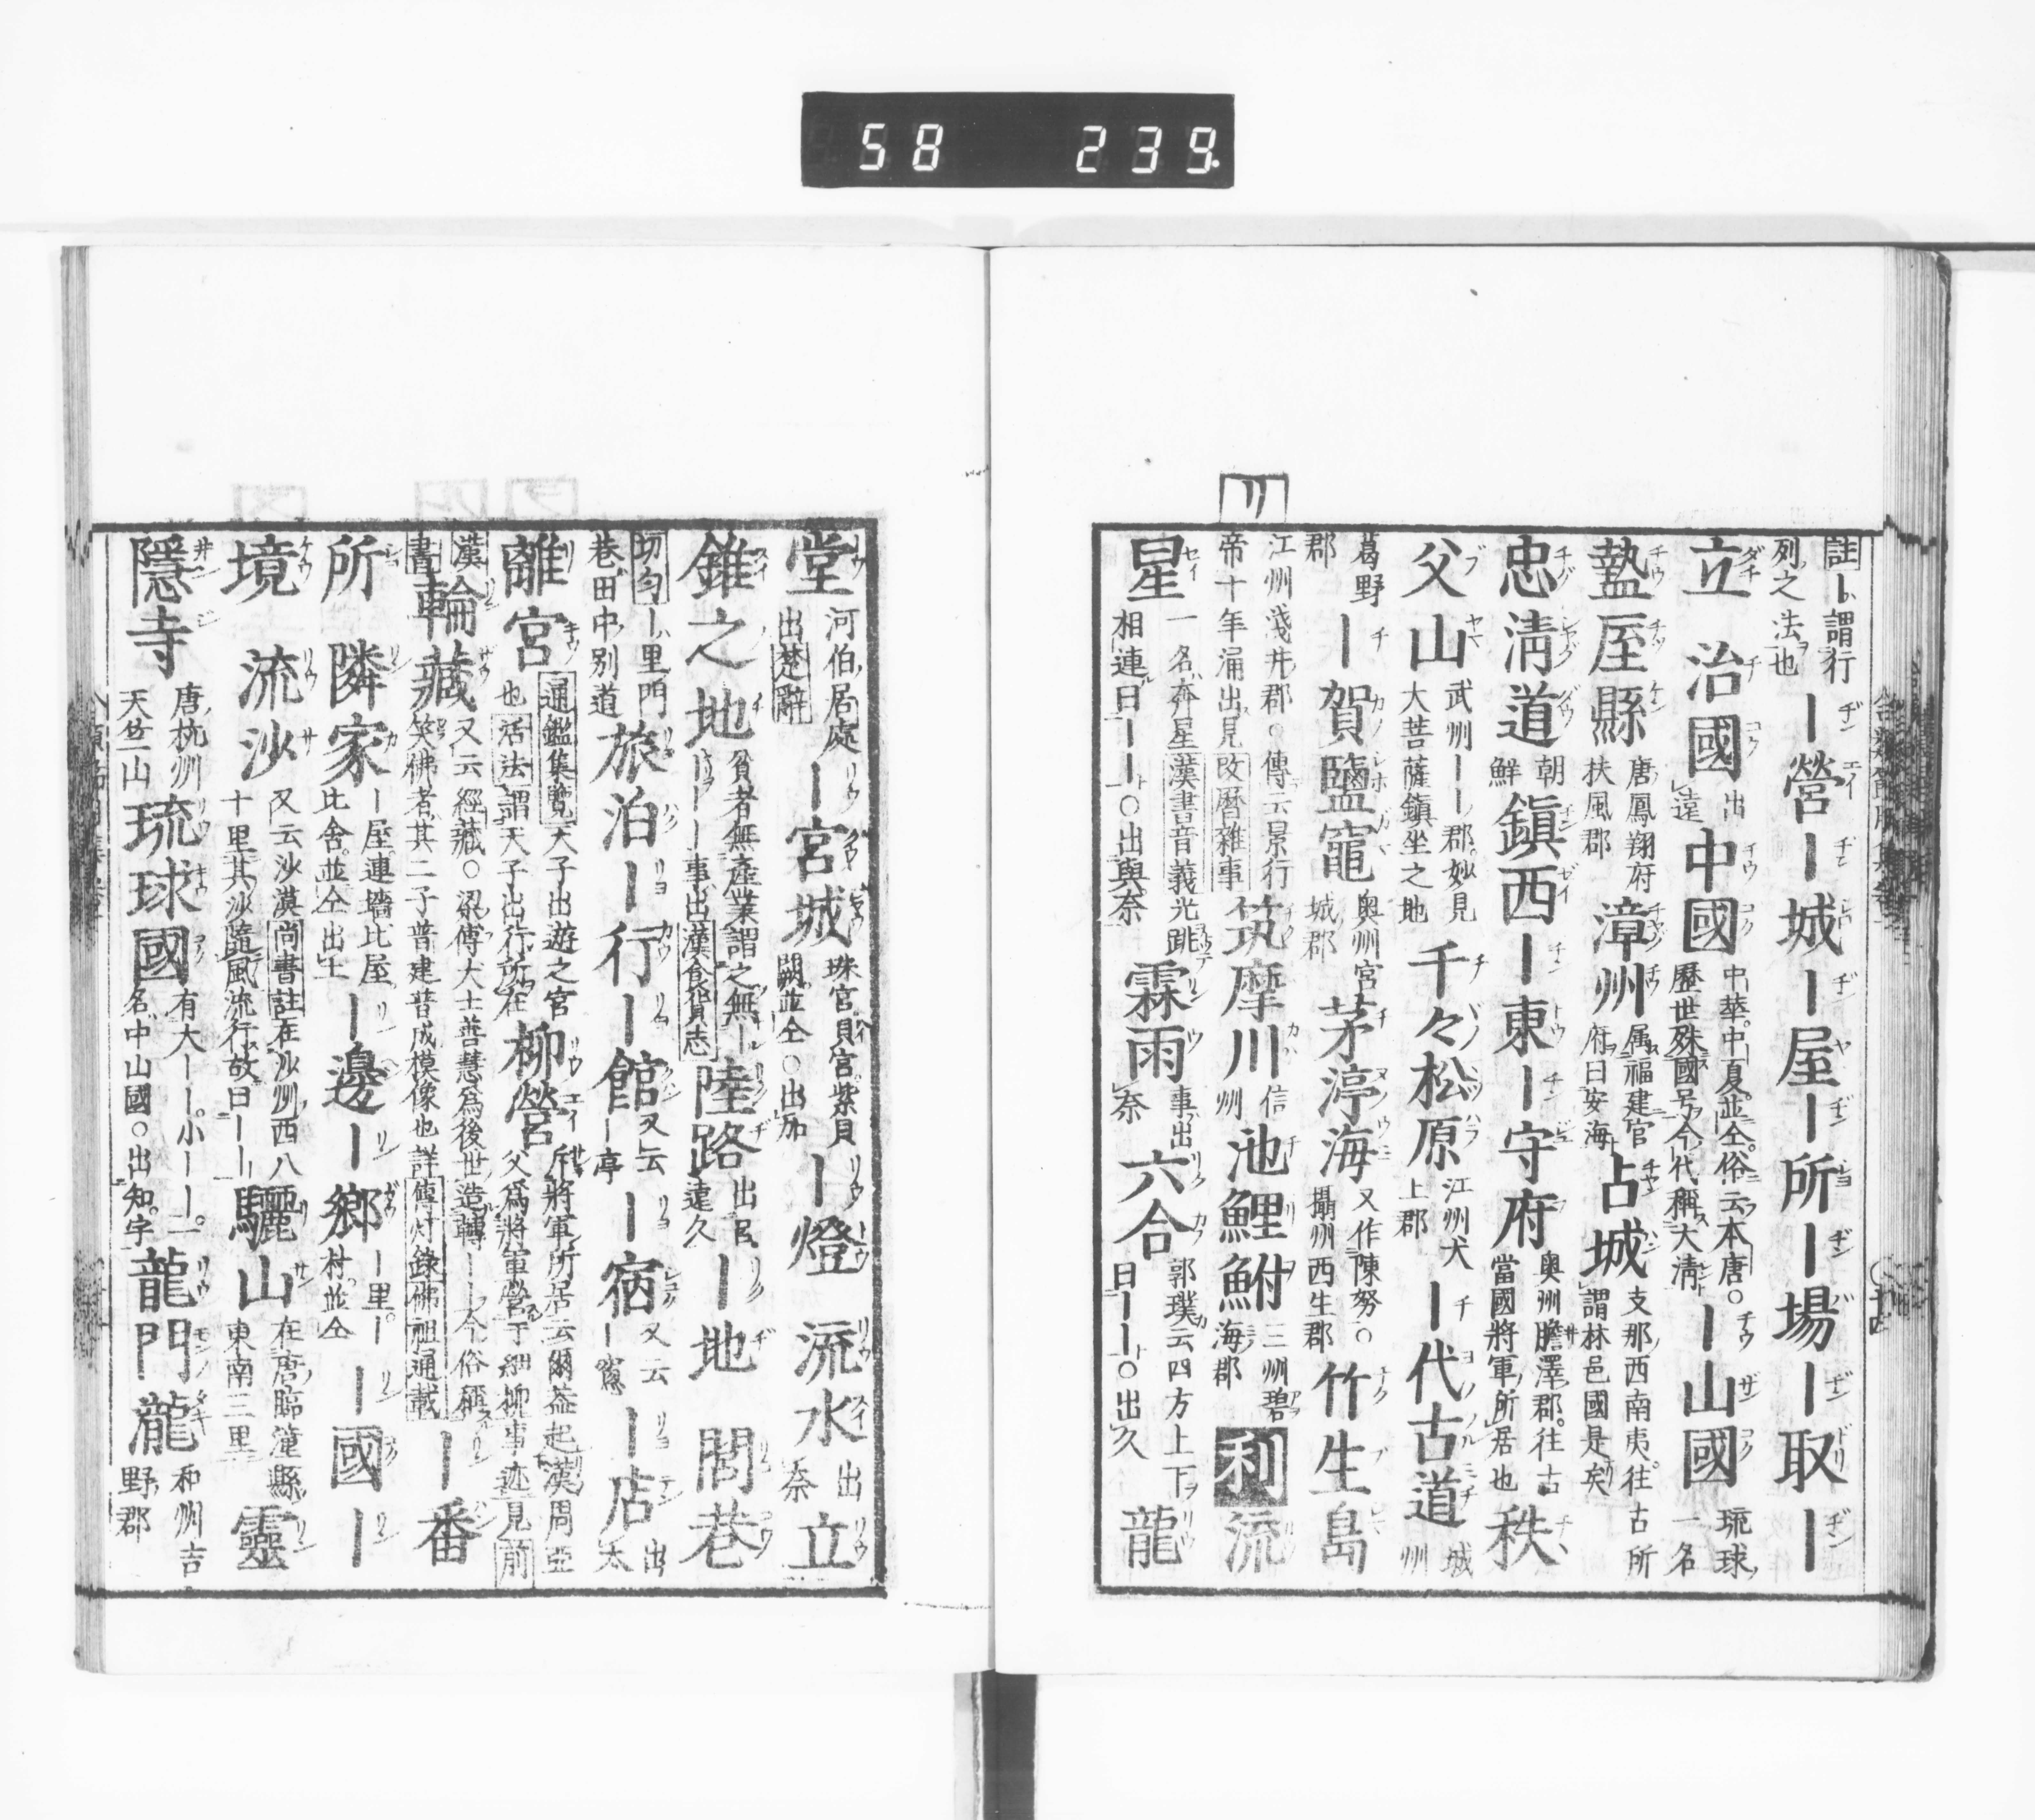 58 239
註ー謂行列之法也 ー營 ー城 ー屋 ー所 ー場 ー取 ー
立 治國 出遠 中國 中華中夏並仝俗云本唐○歷世殊國号今代稱大清 ー山國 琉球一名
盩厔縣 唐鳳翔府扶風郡 漳州 属福建官府曰安海 占城 支那西南夷往古所謂林邑國是矣
忠淸道 朝鮮 鎭西 ー東 ー守府 奥州膽澤郡往古當國將軍所居也 秩
父山 武州ーー郡妙見大菩薩鎭坐之地 千々松原 江州犬上郡 ー代古道 城州
葛野郡 ー賀鹽竈 奥州宮城郡 茅渟海 又作陳努○攝州西生郡 竹生島
江州淺井郡○傳云景行帝十年涌出見改曆雜事 筑摩川 信州 池鯉鮒 三州碧海郡 利 流
リ
星 一名奔星漢書音義光跳相連曰ーー○出與奈 霖雨 事出奈 六合 郭璞云四方上下曰ーー○出久 龍
堂 河伯居處出楚辭 ー宮城 珠宮貝宮紫貝闕並仝○出加 ー燈 流水 出奈 立
錐之地 貧者無産業謂之無ーーーー事出漢食貨志 陸路 出官遠久 ー地 閭巷
切匀ー里門巷田中別道 旅泊 ー行 ー館 又云ー亭 ー宿 又云ー窩 ー店 出太
離宮 通鑑集覽天子出遊之宮也活法謂天子出行所在 柳營 斥將軍所居云爾蓋起漢周亞父爲將軍營于細柳事迹見前
漢書 輪藏 又云經藏○梁傅大士善慧爲後世造轉ー今俗稱笑佛者其二子普建普成模像也詳傳灯錄佛祖通載 ー番
所 隣家 ー屋連墻比屋比舍並仝出土 ー邊 ー鄉 ー里ー村並仝 ー國 ー
境 流沙 又云沙漠尚書註在沙州西八十里其沙隨風流行故曰ーー 驪山 在唐臨潼縣東南三里 靈
隱寺 唐杭州天竺山 琉球國 有大ーー小ーー一名中山國○出知字 龍門瀧 和州吉野郡